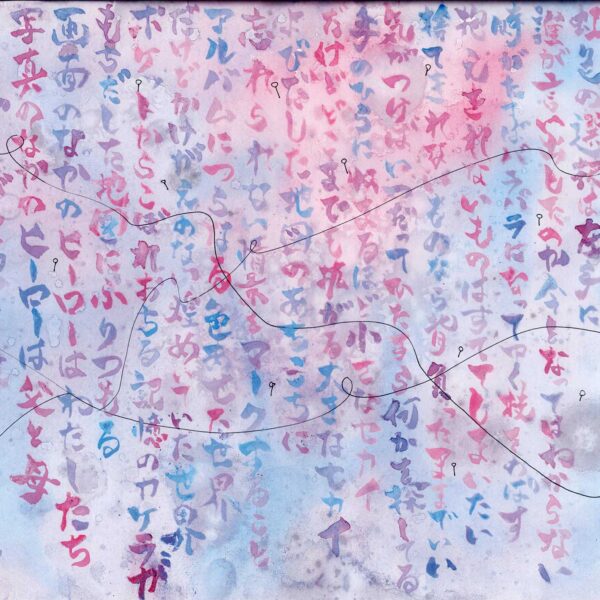 誰が言い出したのか今となってはわからない
時がたてば
抱えきれないものはすててしまいたい
捨てきれないものなら背負ったままでいい
気がつけばいつだってわたしたち何かを探してる
手のひらに収まるほど小さなセカイ
だけどどこまでも拡がる大きなセカイ
よびだした地図のあちこちに
忘れられない情景をマークする
アルバムにつもる色あせた世界
だけどかけがえのない煌めいた世界
ポケットからこぼれおちる記憶のカケラが
もちだした地図にふりつもる
画面のなかのヒーローはわたしたち
写真のなかのヒーローは父と母